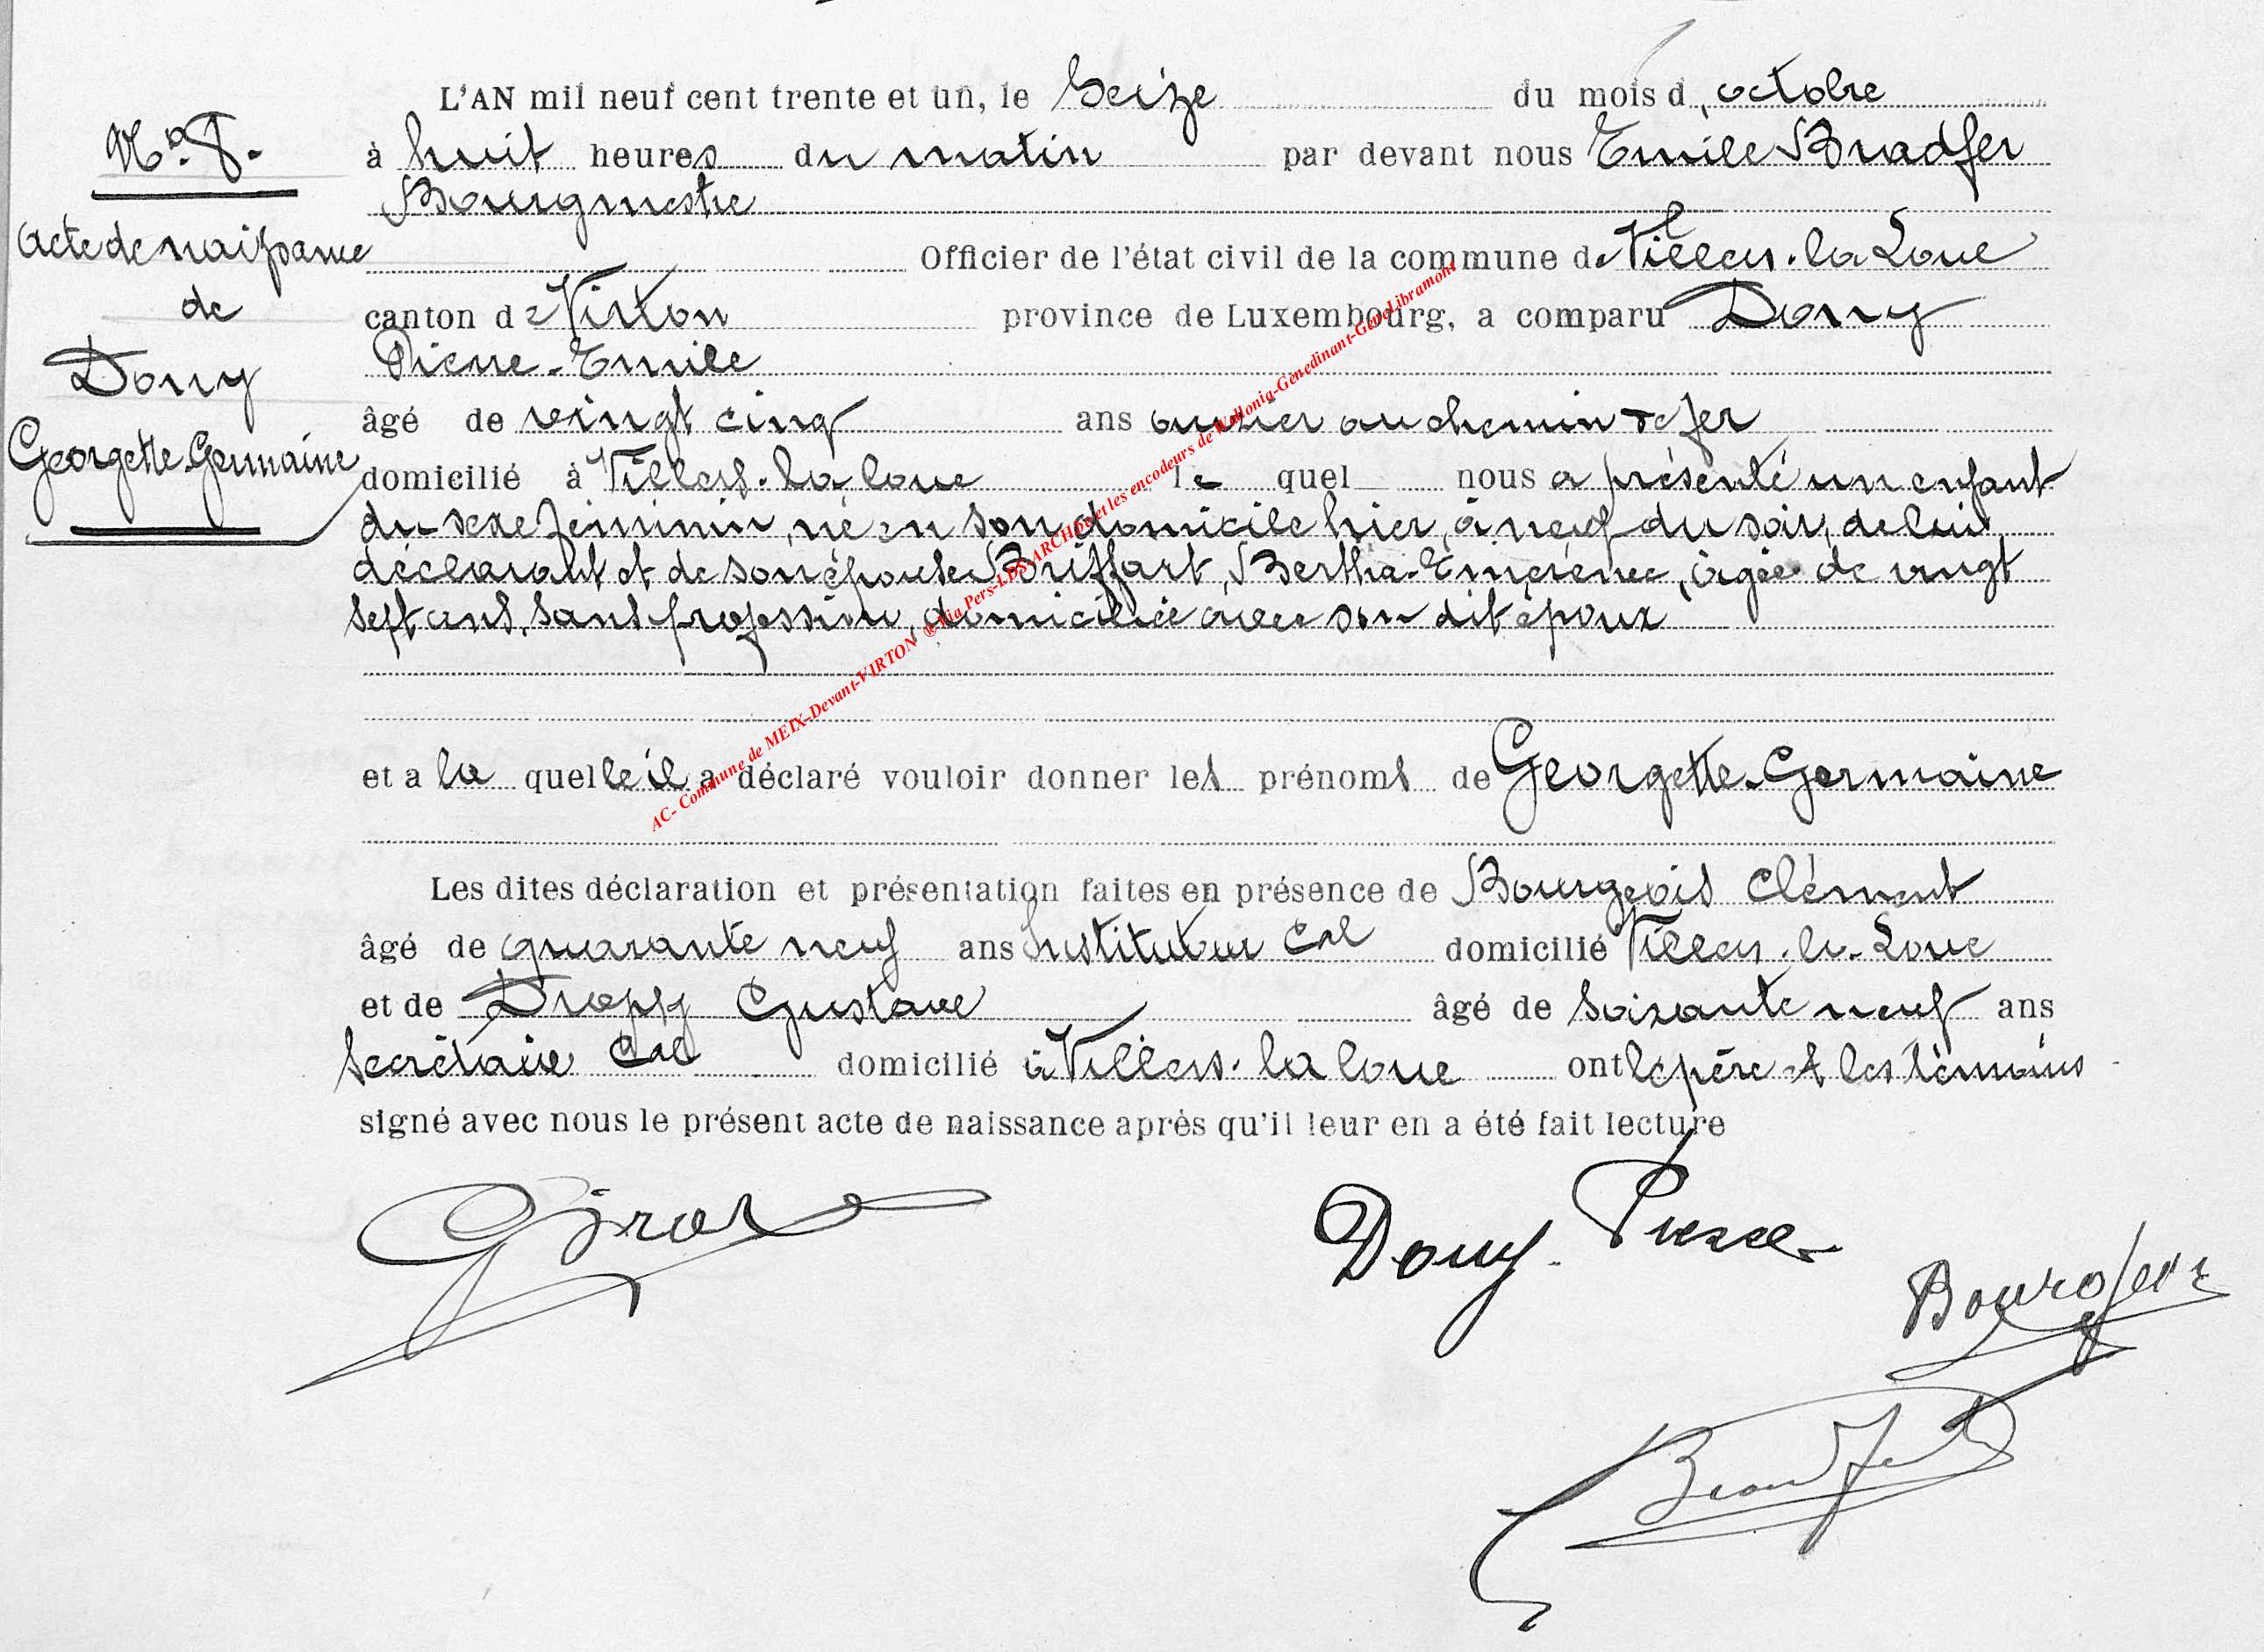 L'AN mil neuf cent trente et un, le Seize du mois d'octobre
N° 8.
à huit heures du matin par devant nous Emile Bradfer
Bourgmestre
Acte de naissance
Officier de l'état civil de la commune de Villers-la-Loue
de
canton de Virton province de Luxembourg, a comparu Dony
Pierre-Emile
Dony
âgé de vingt cinq ans ouvrier au chemin de fer
Georgette-Germaine
domicilié à Villers-la-loue lequel nous a présenté un enfant
du sexe féminin, né en son domicile hier, à neuf du soir, de lui
déclarant et de son épouse Briffart, Bertha-Emérence, âgée de vingt
sept ans, sans profession, domiciliée avec son dit époux
et a la quelle il a déclaré vouloir donner les prénoms de Georgette-Germaine
Les dites déclaration et présentation faites en présence de Bourgeois Clément
âgé de quarante neuf ans Instituteur Cal domicilié Villers-la-Loue
et de Dropsy Gustave âgé de soixante neuf ans
Secrétaire Cal domicilié à Villers-la loue ont le père et les témoins
signé avec nous le présent acte de naissance après qu'il leur en a été fait lecture
Dony Pierre
Bourgeois
Bradfer
AC- Commune de MEIX-Devant-VIRTON ® Via Pers-LDS-ARCHives et les encodeurs de Wallonia-Genedinant-GeneLibramont